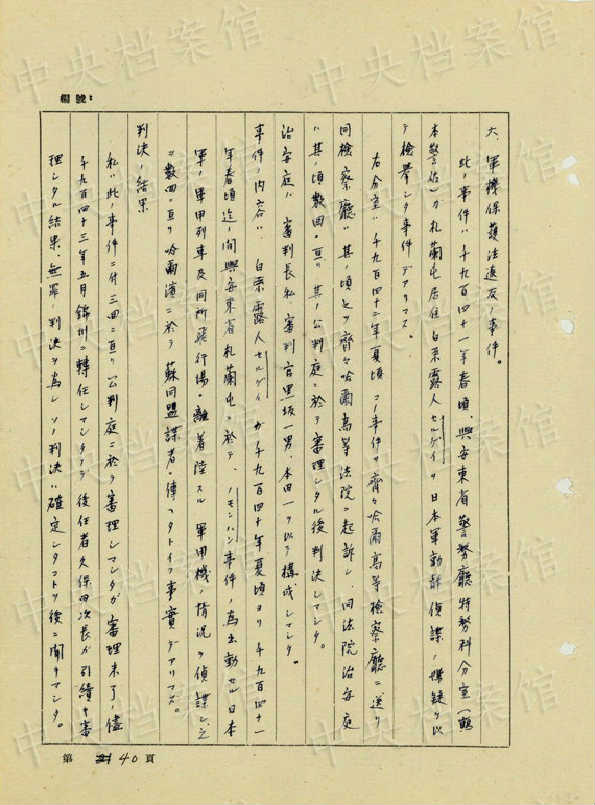 編號：
六、軍機保護法違反ノ事件。
此ノ事件ハ千九百四十一年春頃、興安東省警務廳特務科分室（鶴
本警佐）ガ札蘭屯居住白系露人セルゲイヲ日本軍動静偵諜ノ嫌疑ヲ以
テ検挙シタ事件デアリマス。
右分室ハ千九百四十二年夏頃コノ事件ヲ齊々哈爾高等検察廳ニ送リ
同検察廳ハ其ノ頃之ヲ齊々哈爾高等法院ニ起訴シ、同法院治安庭
ハ其ノ頃数回ニ亘リ其ノ公判庭ニ於テ審理シタル後判決シマシタ。
治安庭ハ審判長私、審判官黒坂一男、本田一ヲ以テ構成シマシタ。
事件ノ内容ハ、白系露人セルゲイガ千九百四十年夏頃ヨリ千九百四十一
年春頃迄ノ間興安東省札蘭屯ニ於テ、ノモンハン事件ノ為出動セル日本
軍ノ軍用列車及同所飛行場ニ離着陸スル軍用機ノ情況ヲ偵諜シ、之
ヲ数回ニ亘リ哈爾濱ニ於テ蘇同盟諜者ニ傳ヘタトイフ事實デアリマス。
判決ノ結果
私ハ此ノ事件ニ付三四回ニ亘リ公判庭ニ於テ審理シマシタガ、審理未了ノ儘
千九百四十三年五月錦州ニ轉任シマシタノデ後任者久保田次長ガ引續キ審
理シタル結果、無罪ノ判決ヲ為シ、ソノ判決ハ確定シタコトヲ後ニ聞キマシタ。
第 40 頁
中央档案馆